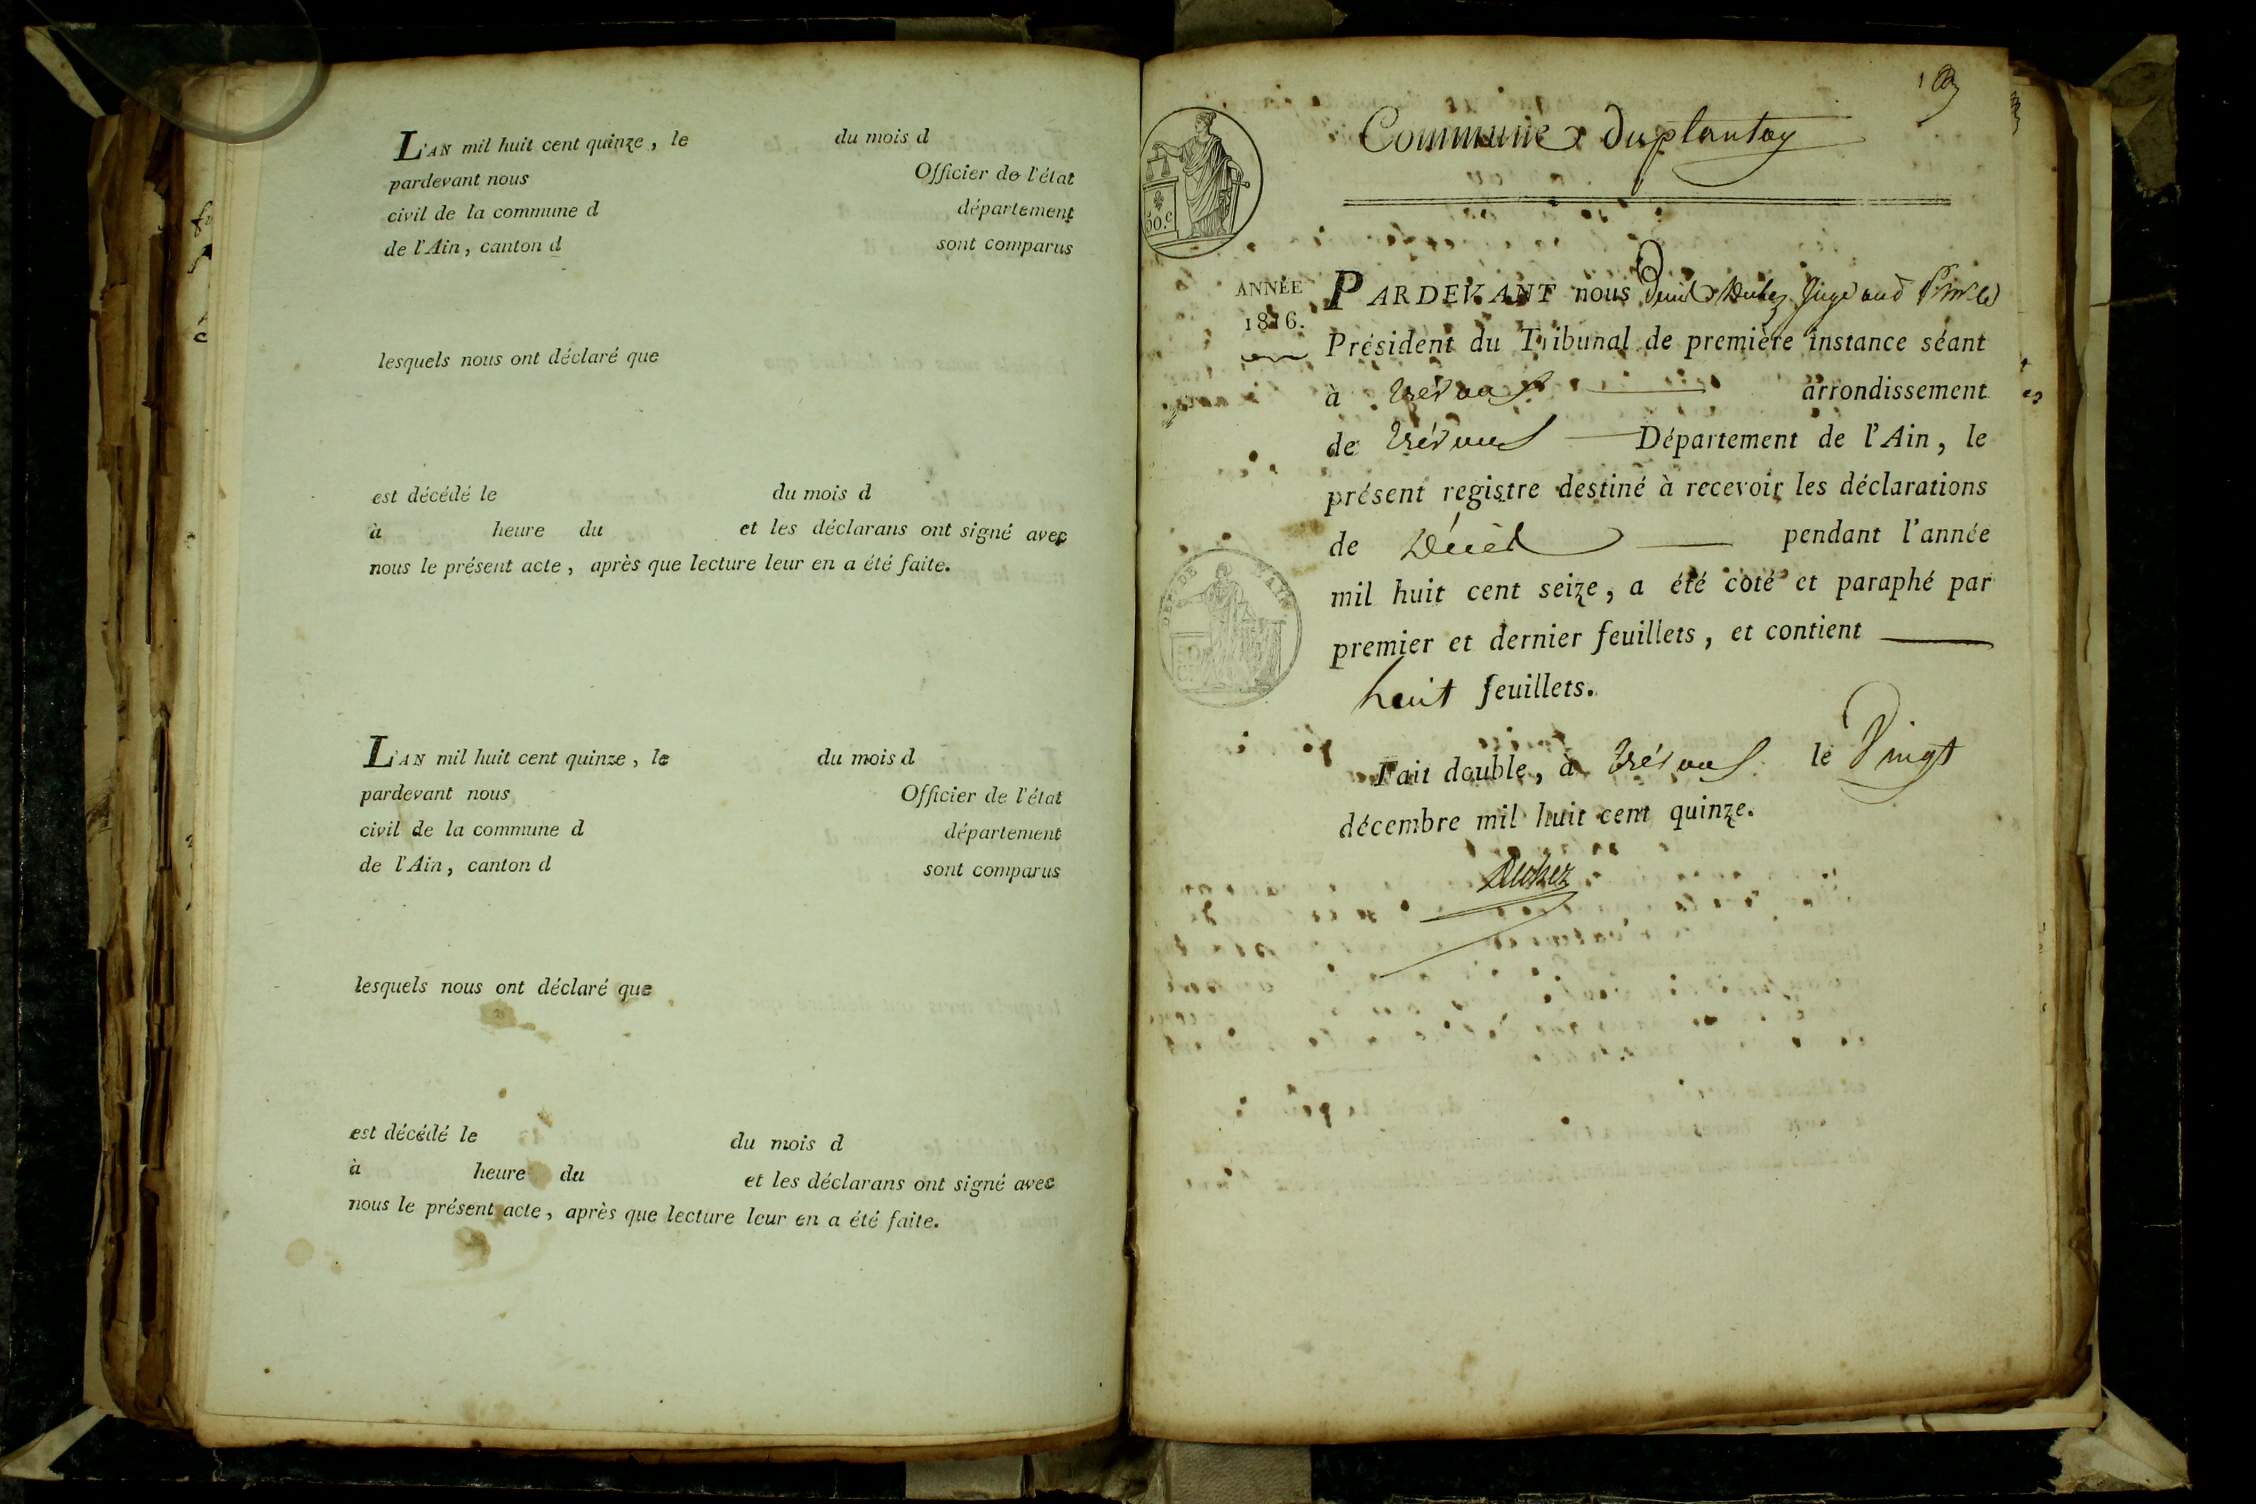 L'AN mil huit cent quinze, le du mois d
pardevant nous Officier de l'état
civil de la commune d département
de l'Ain, canton d sont comparus
lesquels nous ont déclaré que
est décédé le du mois d
à heure du et les déclarans ont signé avec
nous le présent acte, après que lecture leur en a été faite.
L'AN mil huit cent quinze, le du mois d
pardevant nous Officier de l'état
civil de la commune d département
de l'Ain, canton d sont comparus
lesquels nous ont déclaré que
est décédé le du mois d
à heure du et les déclarans ont signé avec
nous le présent acte, après que lecture leur en a été faite.
1
Commune duplantay
50.c
ANNÉE
1816.
PARDEVANT nous Juge
Président du Tribunal de première instance séant
à trévoux arrondissement
de trévoux Département de l'Ain, le
présent registre destiné à recevoir les déclarations
de Décès pendant l'année
mil huit cent seize, a été coté et paraphé par
premier et dernier feuillets, et contient
huit feuillets.
Fait double, à trévoux le Vingt
décembre mil huit cent quinze.